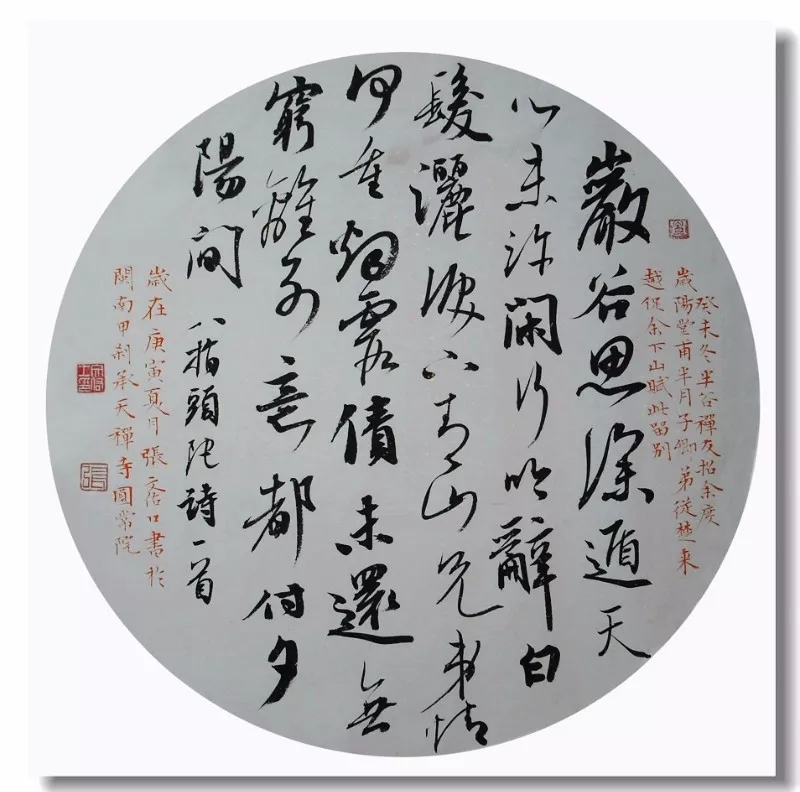 癸未冬半谷禪友招余度
歲陽堂甫半月子卿弟從楚來
越促余下山賦此留別
巖谷思深遁天
心未許閑行吟辭白
髮灑淚下青山兄弟情
何重烟霞債未還無
窮離別意都付夕
陽間 八指頭陀詩一首
歲在庚寅夏月張書於
閩南甲刹承天禪寺圓常院
張